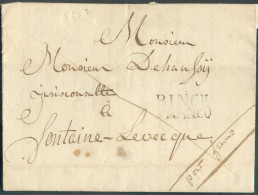 Monsieur
Monsieur Dehaussÿ
jurisconsulte
BINCH
à
fontaine-Levecque.
port